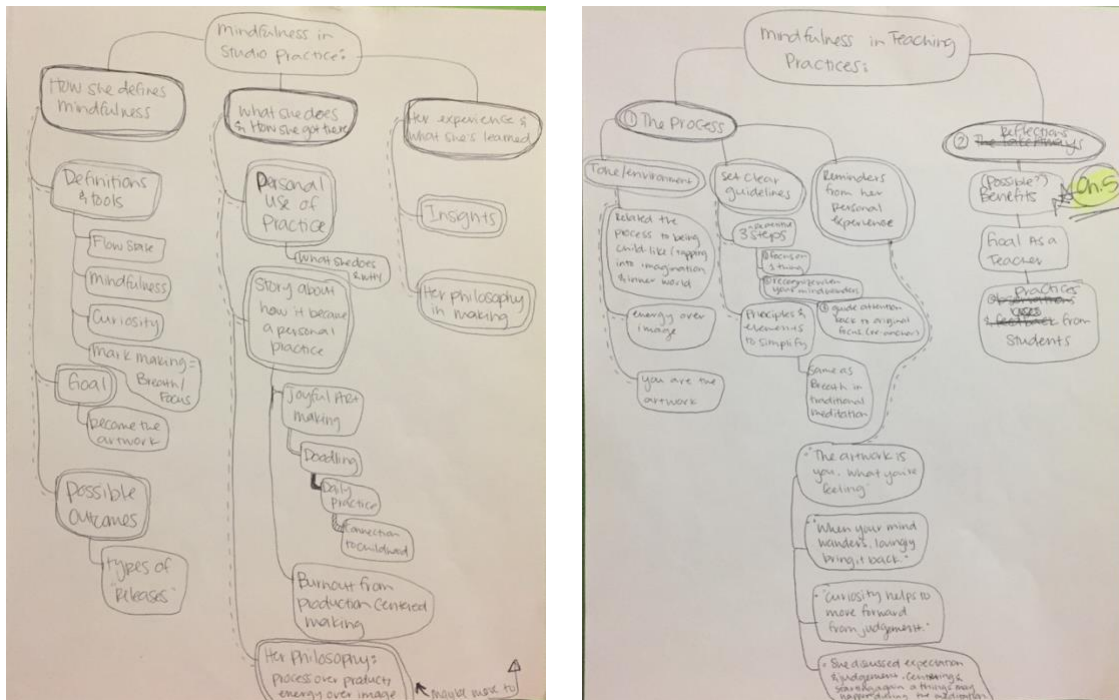 Mindfulness in
Studio Practice:
How she defines
mindfulness
Definitions
& tools
Flow State
Mindfulness
Curiosity
Mark making =
Breath/
Focus
Goal
become the
artwork
Possible
Outcomes
types of
"releases"
What she does
& How she got there
Personal
use of
Practice
What she does
& why
Story about
how it became
a personal
practice
Joyful Art
making
Doodling
Daily
Practice
Connection
to childhood
Burnout from
production centered
making
Her philosophy:
process over product;
energy over image
Maybe move to
Her experience &
what she's learned
Insights
Her philosophy
in making
Mindfulness in Teaching
Practices:
① The Process
Tone/environment
Related the
process to being
childlike/tapping
into imagination
& inner world
energy over
image
you are the
artwork
Set clear
guidelines
3 steps
① focus on
1 thing
② recognize when
your mind wanders
③ guide attention
back to original
focus (or anchor)
Principles &
elements
to simplify
Same as
Breath in
traditional
meditation
Reminders
from her
personal
experience
"The artwork is
you. What you're
feeling"
"When your mind
wanders, lovingly
bring it back."
"Curiosity helps to
move forward
from judgement."
She discussed expectation
& judgement. Centering &
starting again & things may
happen during the meditation
② Reflections
The Takeaways
(Possible?)
Benefits
Ch. 5
Goal As a
Teacher
Practices
observations
used
& feedback from
Students